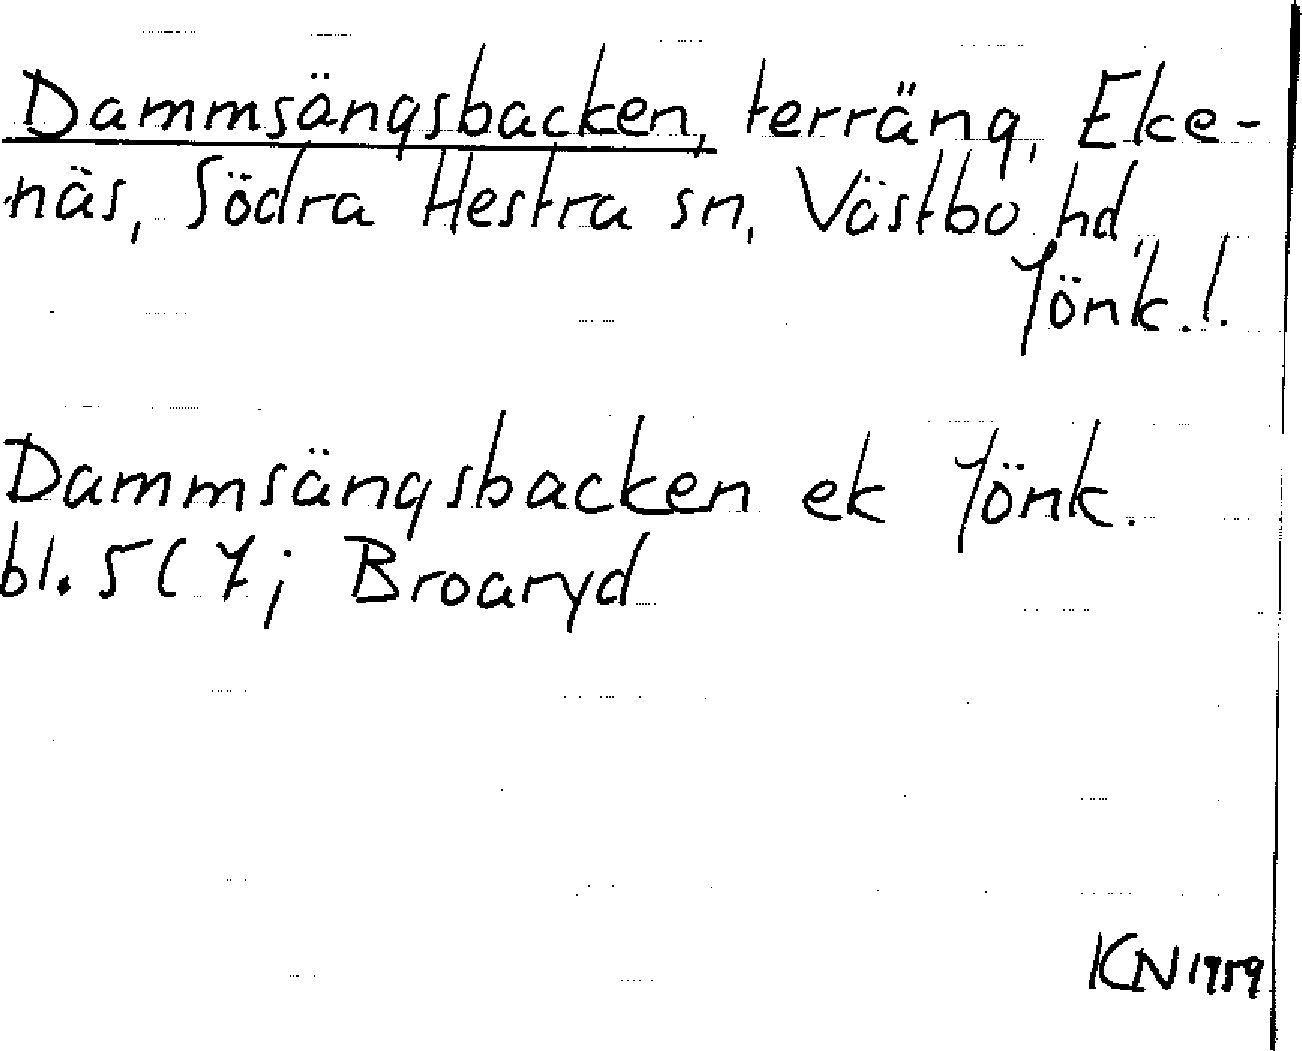 Dammsängsbacken, terräng, Eke-
näs, Södra Hestra sn, Västbo hd,
Jönk.l.
Dammsängsbacken ek Jönk.
bl. 5 C 7; Broaryd
KN 1959